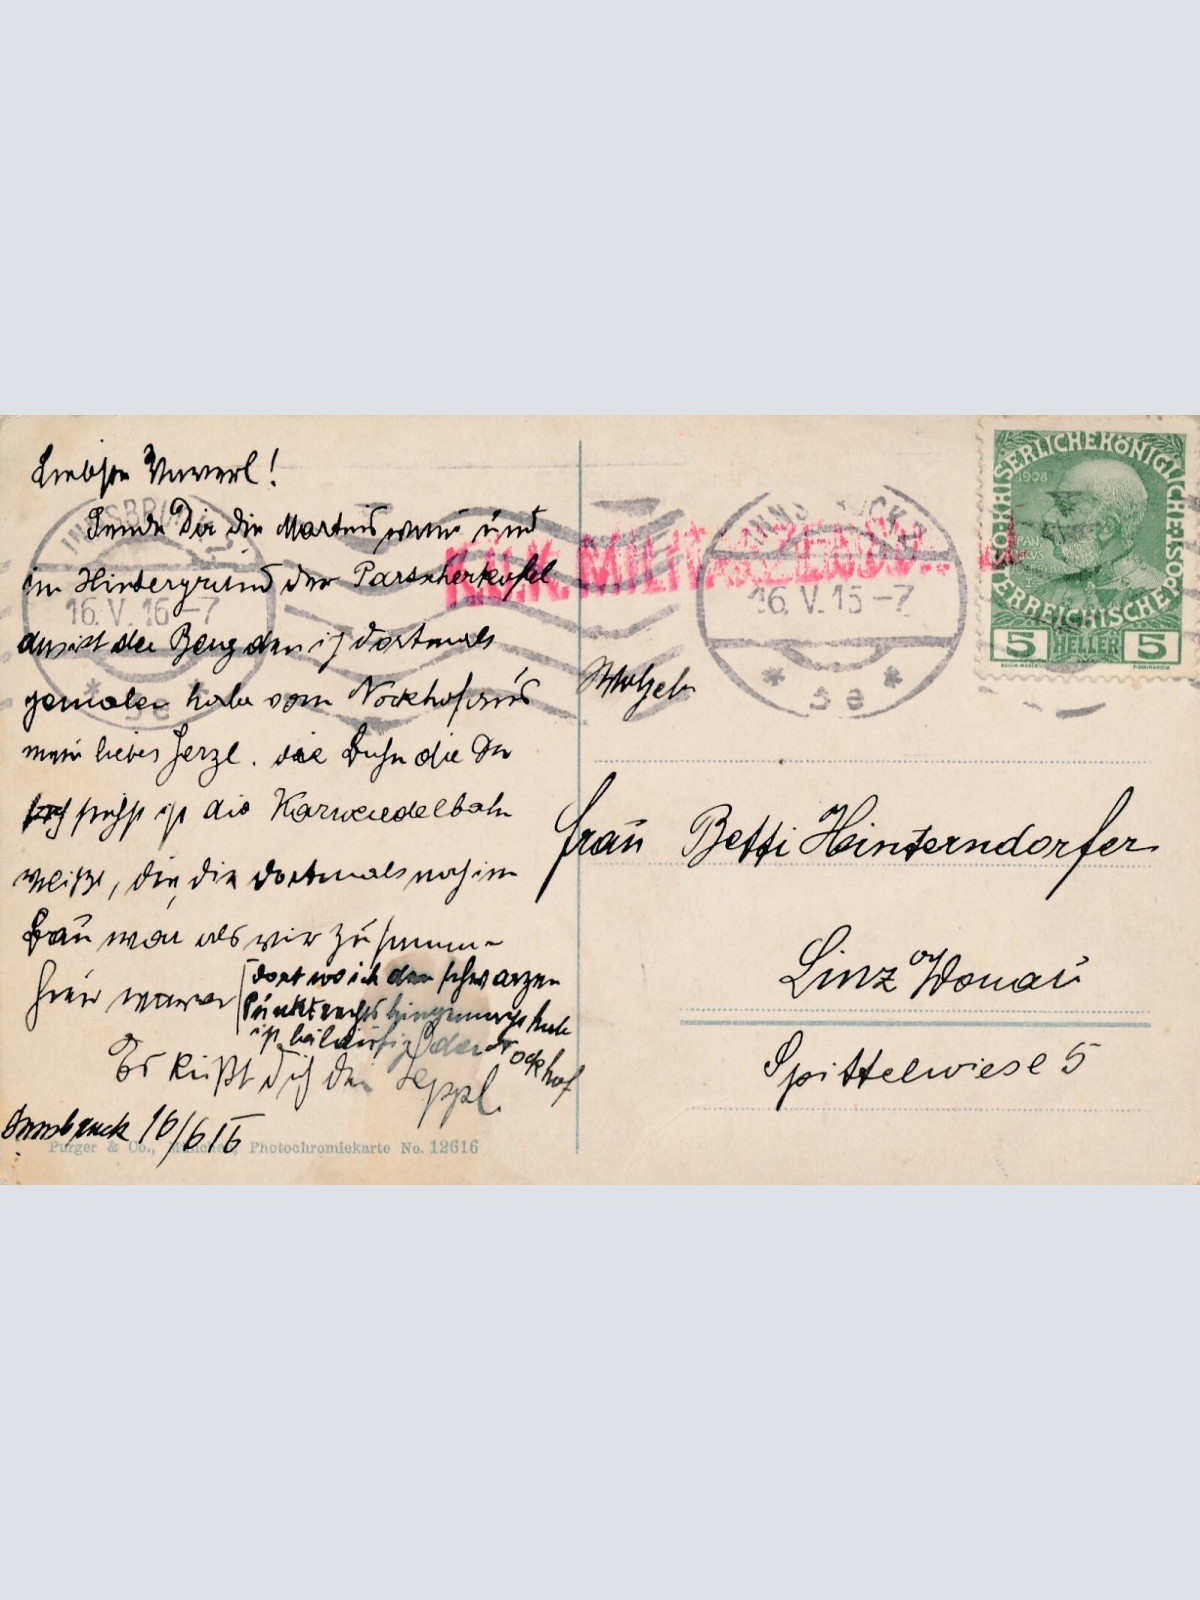 Liebste
Sende Dir die Martinswand und
im Hintergrund der Patscherkofel
das ist der Berg den ich dortmals
gemalen habe vom Nockhof aus
mein liebes Herzl. die Bahn die Du
siehst ist die Karwendelbahn
weißt, die, die dortmals noch im
Bau war als wir zusamm
hier waren
dort wo ich den schwarzen
Punkt rechts hingemacht habe
ist beiläufig der Nockhof
Es küßt Dich Dein Seppl.
Innsbruck 16/6 16
Purger & Co., München, Photochromiekarte No. 12616
INNSBRUCK 2
16. V. 16-7
5e
K.u.K. MILITÄRZENSUR
INNSBRUCK 2
16. V. 15-7
5e
KAISERLICHE KÖNIGLICHE ÖSTERREICHISCHE POST
1908
5 HELLER 5
Frau Betti Hinterndorfer
Linz a/Donau
Spittelwiese 5